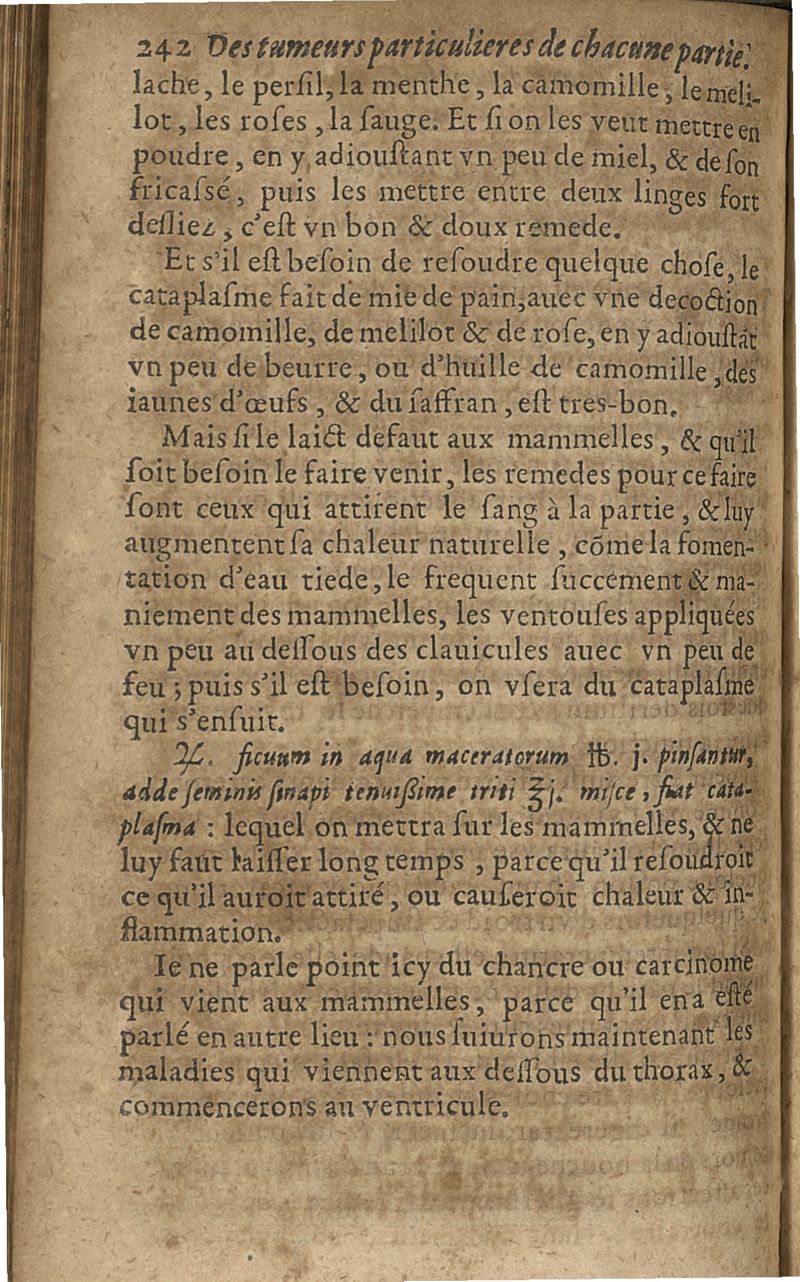 242 Des tumeurs particulieres de chacune partie.
lache, le perſil, la menthe, la camomille, le meli-
lot, les roſes, la ſauge. Et ſi on les veut mettre en
poudre, en y adiouſtant vn peu de miel, & de ſon
fricaſsé, puis les mettre entre deux linges fort
desliez, c'eſt vn bon & doux remede.
Et s'il eſt beſoin de reſoudre quelque choſe, le
cataplaſme fait de mie de pain, auec vne decoction
de camomille, de melilot & de roſe, en y adiouſtãt
vn peu de beurre, ou d'huille de camomille, des
iaunes d'œufs, & du ſaffran, eſt tres-bon.
Mais ſi le laict defaut aux mammelles, & qu'il
ſoit beſoin le faire venir, les remedes pour ce faire
ſont ceux qui attirent le ſang à la partie, & luy
augmentent ſa chaleur naturelle, cõme la fomen-
tation d'eau tiede, le frequent ſuccement & ma-
niement des mammelles, les ventouſes appliquées
vn peu au deſſous des clauicules auec vn peu de
feu ; puis s'il eſt beſoin, on vſera du cataplaſme
qui s'enſuit.
♃. ficuum in aqua maceratorum ℔. j. pinſantur,
adde ſeminis ſinapi tenuißime triti ℥j. miſce, fiat cata-
plaſma : lequel on mettra ſur les mammelles, & ne
luy faut laiſſer long temps, parce qu'il reſoudroit
ce qu'il auroit attiré, ou cauſeroit chaleur & in-
flammation.
Ie ne parle point icy du chancre ou carcinome
qui vient aux mammelles, parce qu'il en a eſté
parlé en autre lieu : nous ſuiurons maintenant les
maladies qui viennent aux deſſous du thorax, &
commencerons au ventricule.